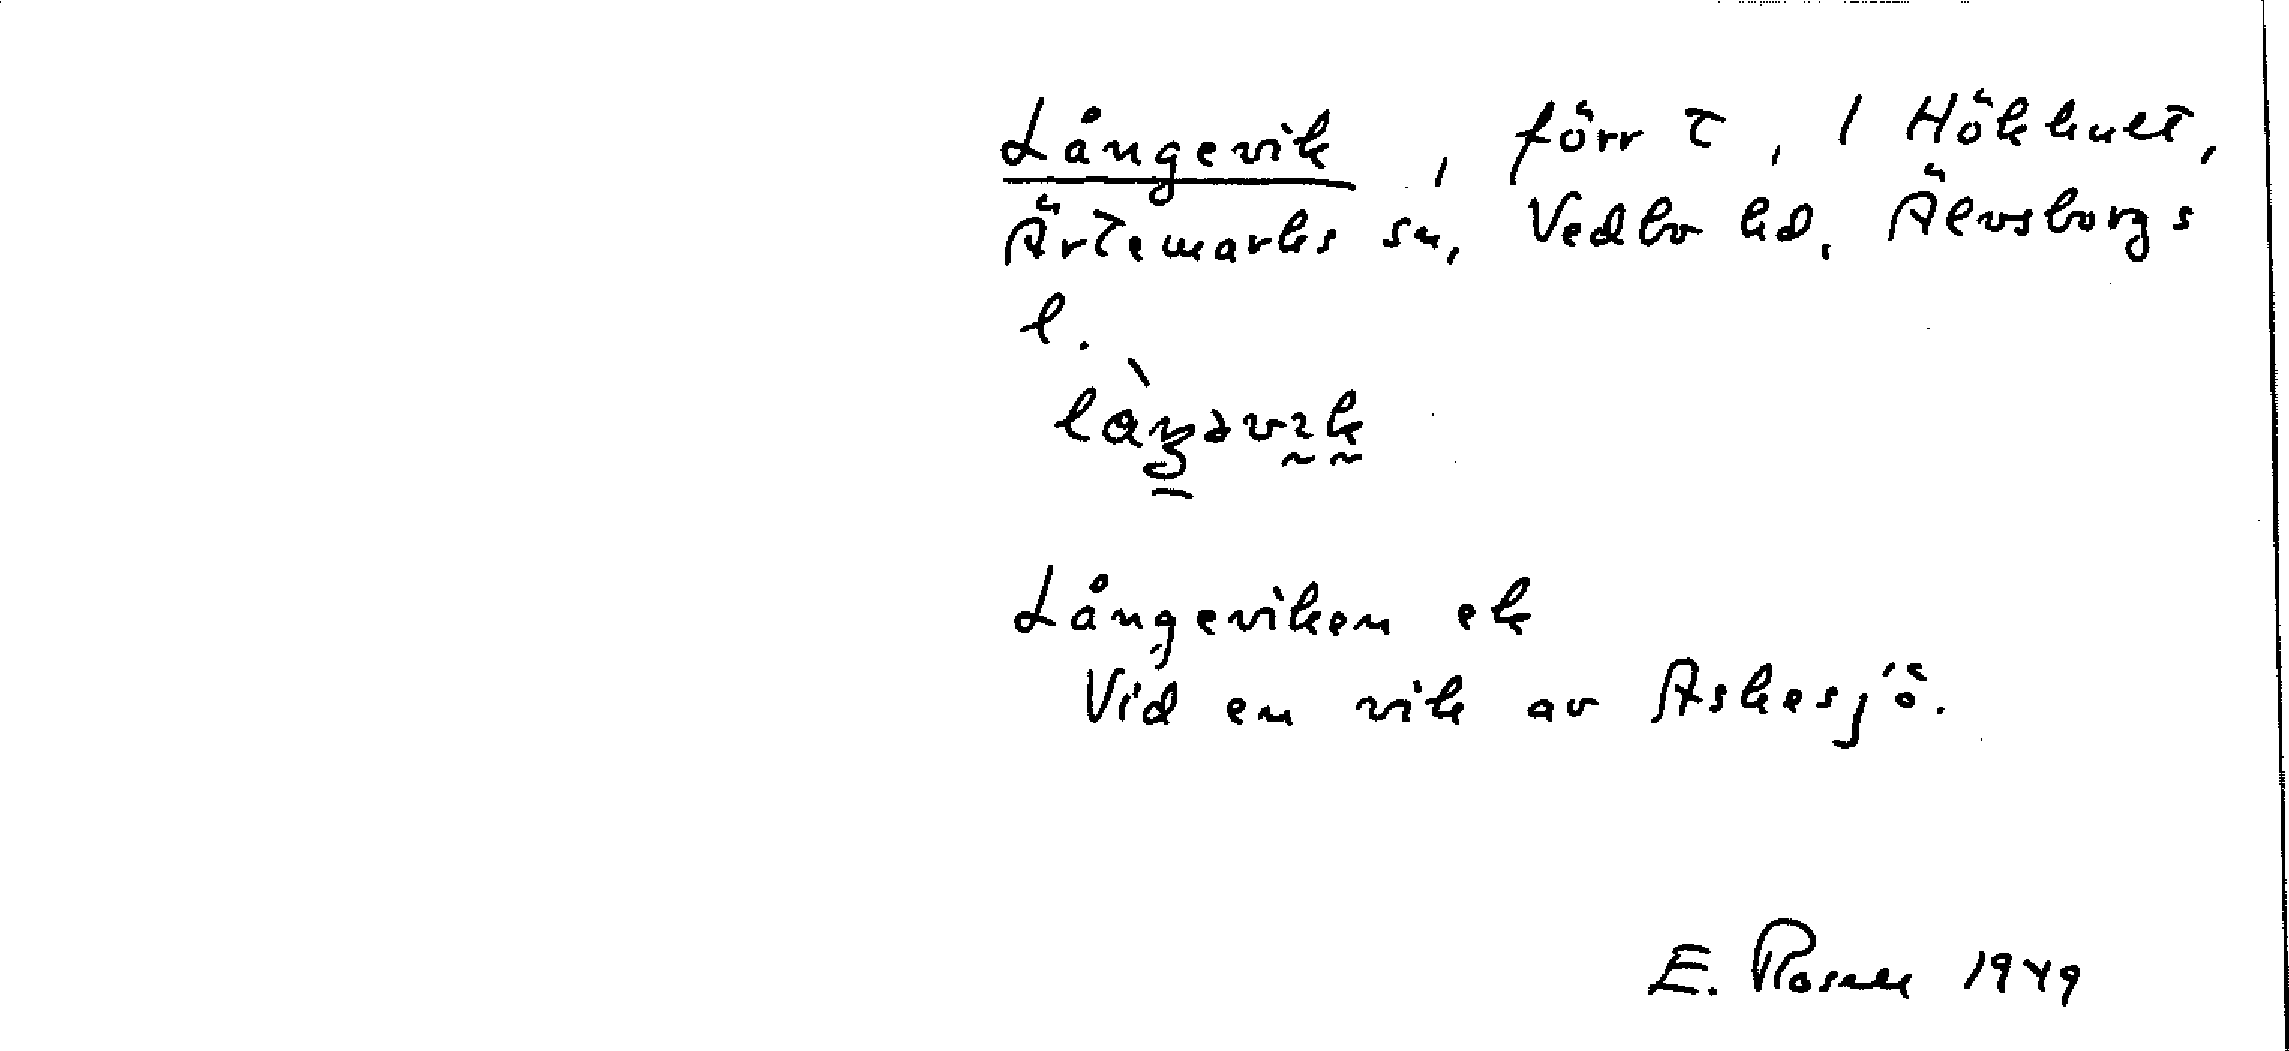 Långevik, förr t, i Hökhult,
Ärtemarks sn, Vedbo hd, Älvsborgs
l.
Långeviken ek
Vid en vik av Askesjö.
E. Rosell 1949